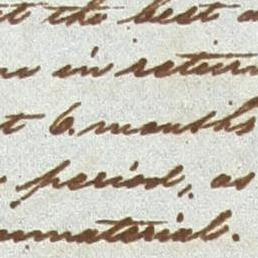 the best
in return
6 months
period, as
immaterial.